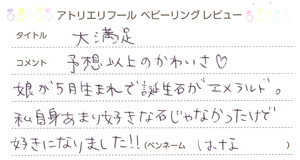 アトリエリフール ベビーリング レビュー
タイトル 大満足
コメント 予想以上のかわいさ♡
娘が5月生まれで誕生石がエメラルド。
私自身あまり好きな石じゃなかったけど
好きになりました!! (ペンネーム はな )